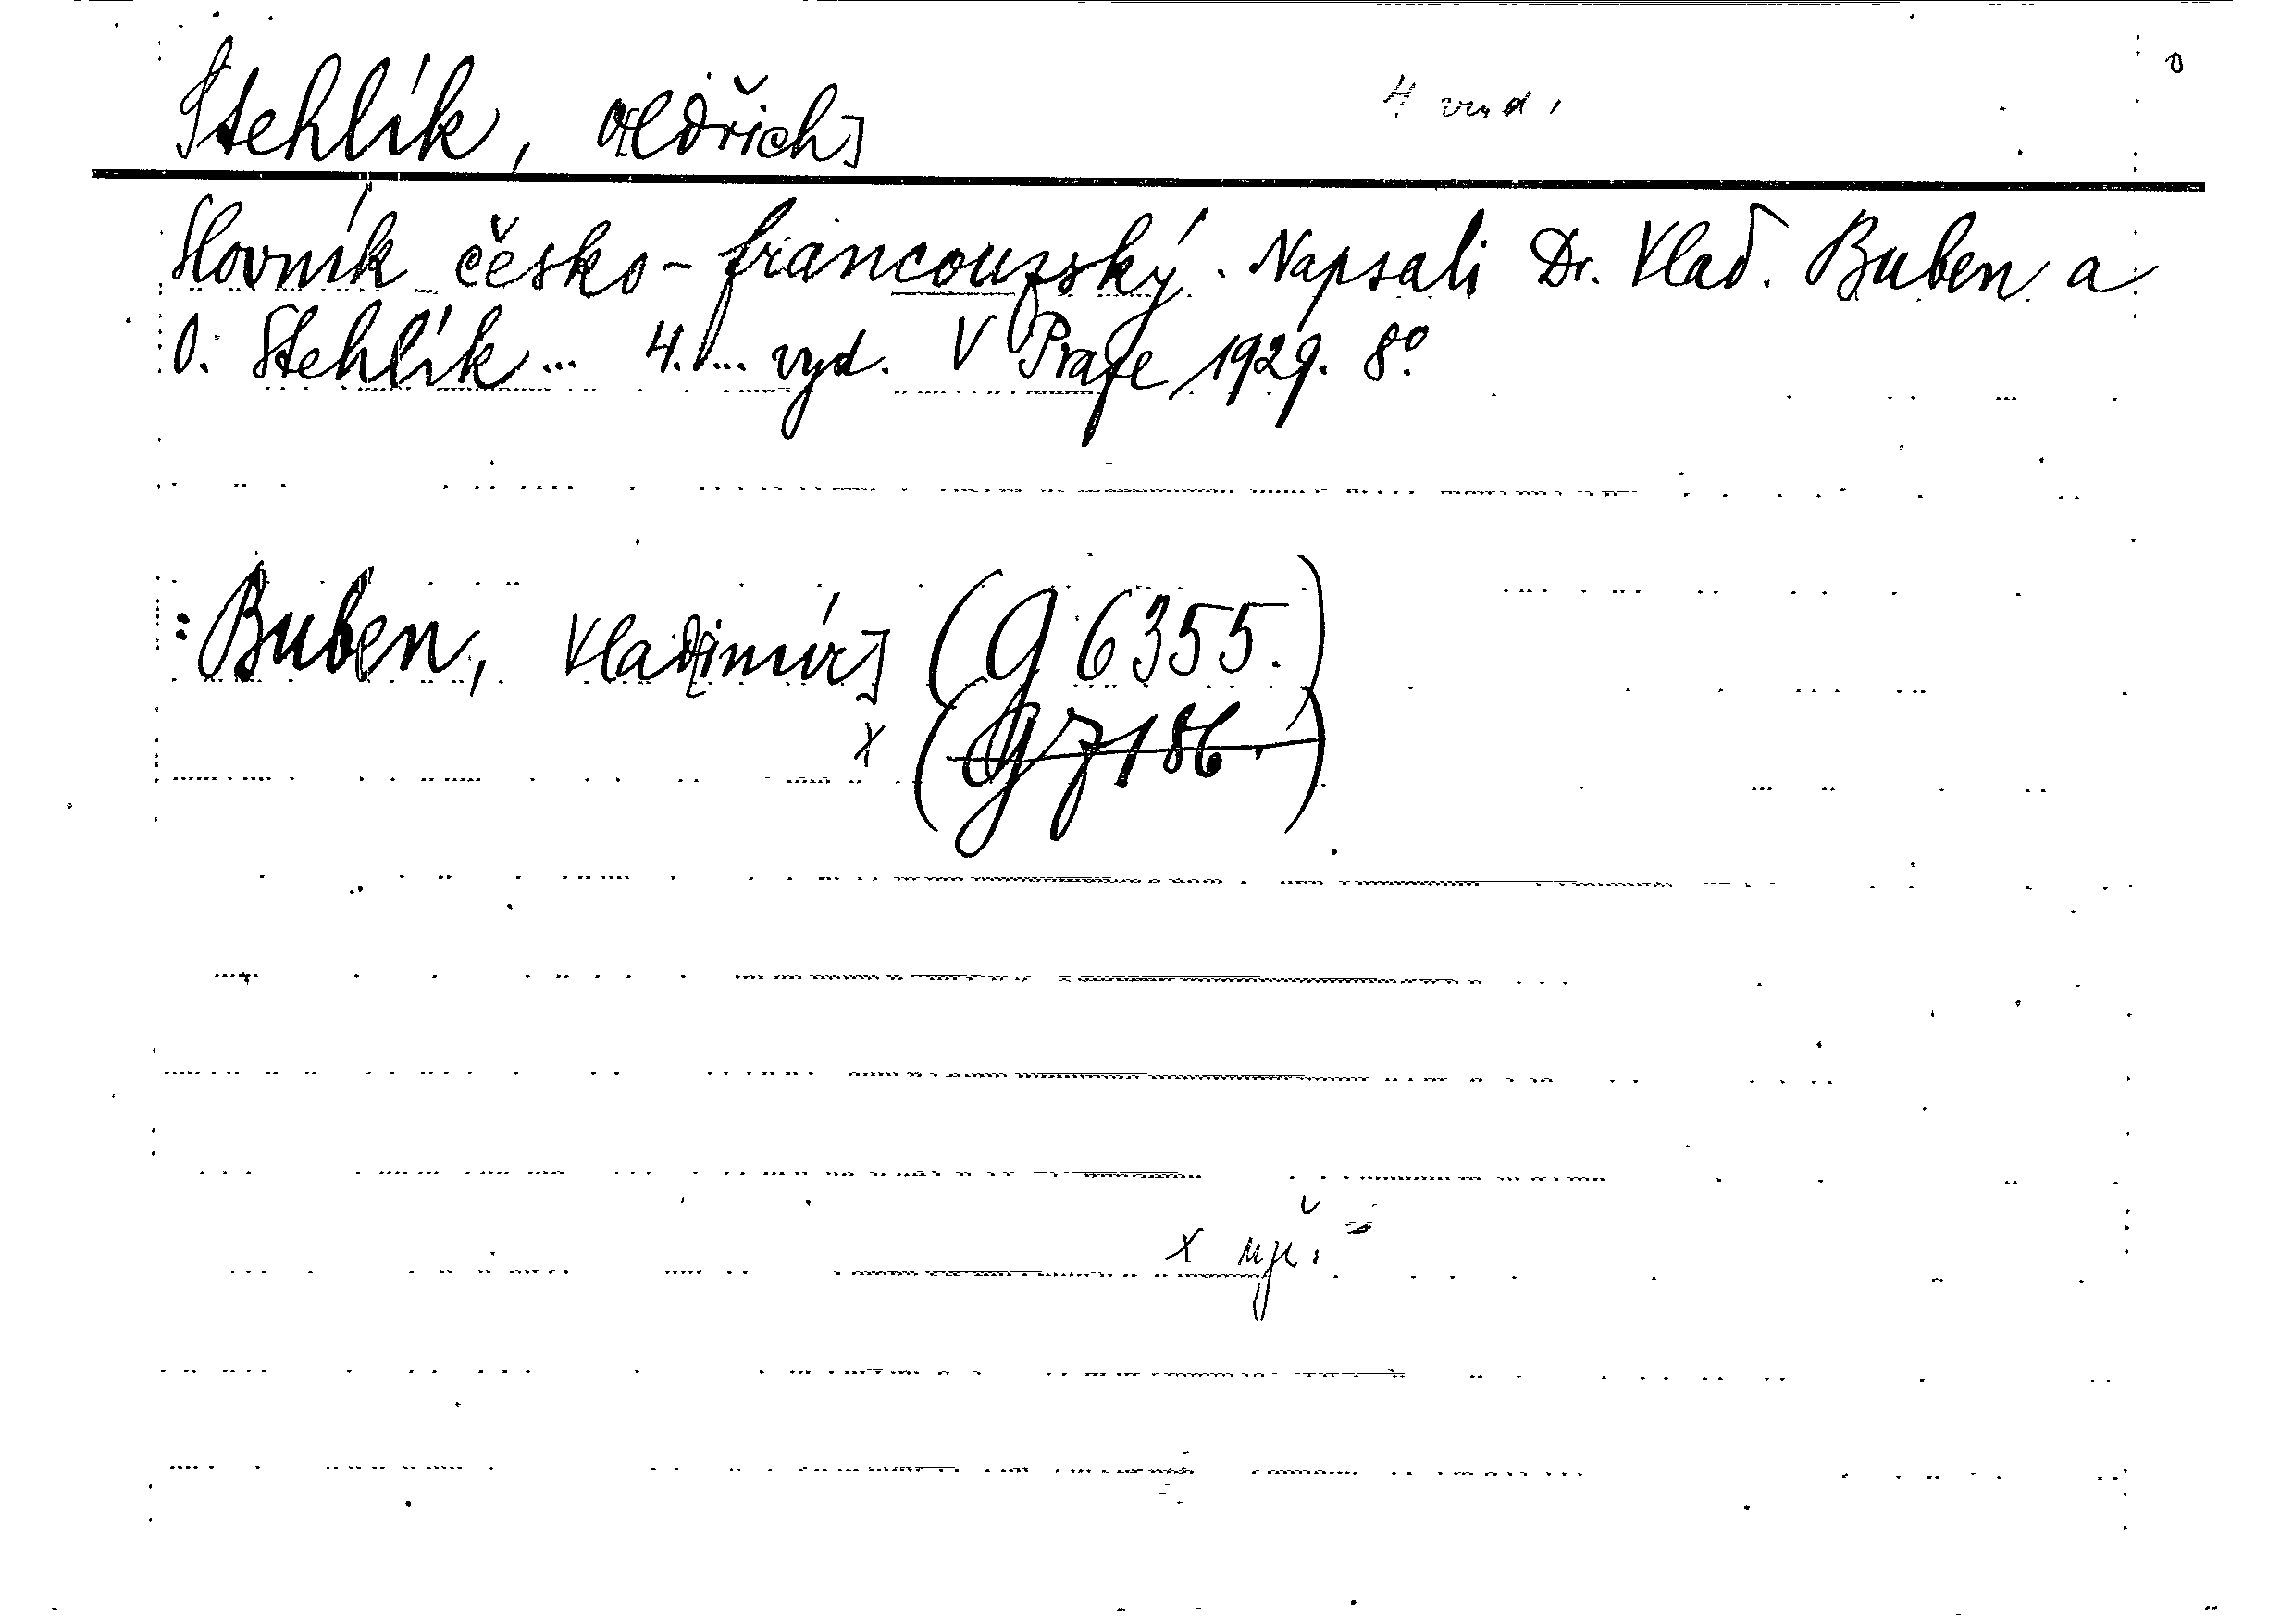 Stehlík, O[ldřich] 4. vyd.
Slovník česko-francouzský. Napsali Dr. Vlad. Buben a
O. Stehlík... 4.... vyd. V Praze 1929. 8°.
: Buben, Vlad[imír] (G 6355.)
x (G 7186.)
x